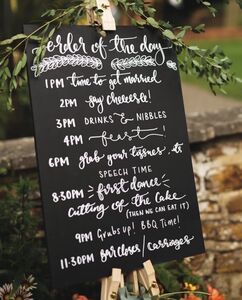 order of the day
1PM time to get married
2PM say cheeeese!
3PM DRINKS & NIBBLES
4PM feast!
6PM grab your tissues, it's
SPEECH TIME
8·30PM first dance
Cutting of the Cake
(THEN WE CAN EAT IT)
9PM Grubs up! BBQ Time!
11:30PM bar closes / carriages